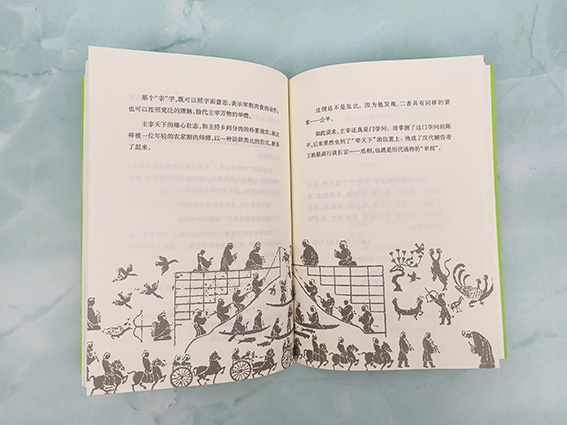 那个“宰”字，既可以照字面意思，表示宰割肉食的动作，
也可以按照宽泛的理解，指代主宰万物的举措。
主宰天下的雄心壮志，和主持乡到分肉的朴素现实，就这
样被一位年轻的农家割肉师傅，以一种话锋类比的形式，联系
了起来。
这倒还不是乱比。因为他发现，二者具有同样的要
素——公平。
如此说来，主宰还真是门学问。而掌握了这门学问的陈
平，后来果然坐到了“宰天下”的位置上：他成了汉代辅佐帝
王的最高行政长官——丞相，也就是历代通称的“宰相”。